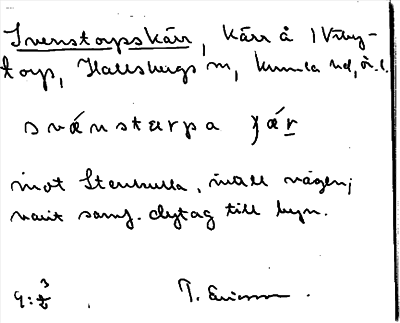 Svenstorpskärr, Kärr å 1 Vreby-
torp, Hallsbergs sn, Kumla hd, ör. l.
svänstarpa çär
mot Stenkulla, intill vägen;
varit samf. dytag till byn.
T. Ericsson.